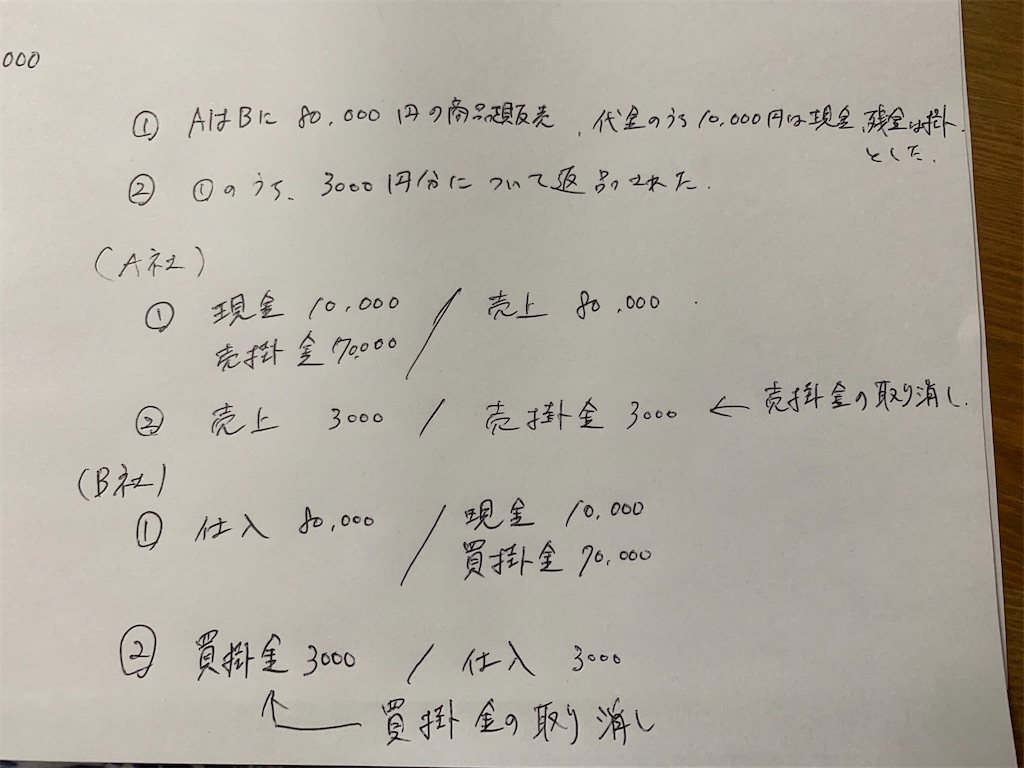 000
① AはBに 80,000円の商品販売、代金のうち10,000円は現金、残金は掛
とした.
② ①のうち、3000円分について返品された.
(A社)
① 現金 10,000 / 売上 80,000
売掛金 70,000
② 売上 3000 / 売掛金 3000 ← 売掛金の取り消し.
(B社)
① 仕入 80,000 / 現金 10,000
買掛金 70,000
② 買掛金 3000 / 仕入 3000
買掛金の取り消し